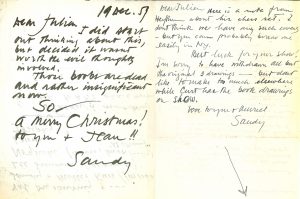 19 Dec. 51
Dear Julien
I did start
out thinking about this,
but decided it wasn't
worth the evil thoughts
involved.
Their boobs are dead
and rather insignificant
now.
So
a merry Christmas!
to you + Jean !!
Sandy
Dear Julien
Here is a note from
about his chess set. I don't
think we have any such
but you can probably
easily in NY.
Best luck for your show.
I'm sorry to have withdrawn all but
the original drawings – but don't
like to make too much elsewhere
while Curt has the book drawings
on SHOW.
love Wayne + Muriel
Sandy